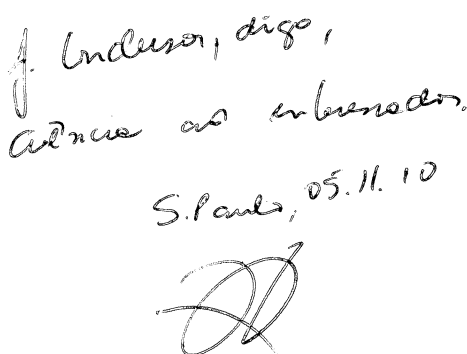 J. Conclusos, digo,
ciência aos interessados.
S.Paulo, 05.11.10